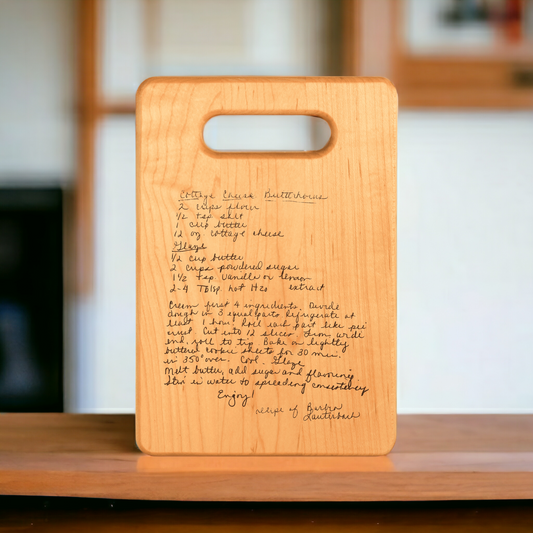 Cottage Cheese Butterhorns
2 cups flour
1/2 tsp salt
1 cup butter
12 oz cottage cheese
Glaze
1/2 cup butter
2 cups powdered sugar
1 1/2 tsp. vanilla or lemon
2-4 Tblsp. hot H2O extract
Cream first 4 ingredients. Divide
dough in 3 equal parts. Refrigerate at
least 1 hour. Roll each part like pie
crust. Cut into 12 slices. From wide
end, roll to tip. Bake on lightly
buttered cookie sheets for 30 min.
in 350° oven. Cool. Glaze
Melt butter, add sugar and flavoring
Stir in water to spreading consistency
Enjoy!
recipe of Barbra
Lauterbach